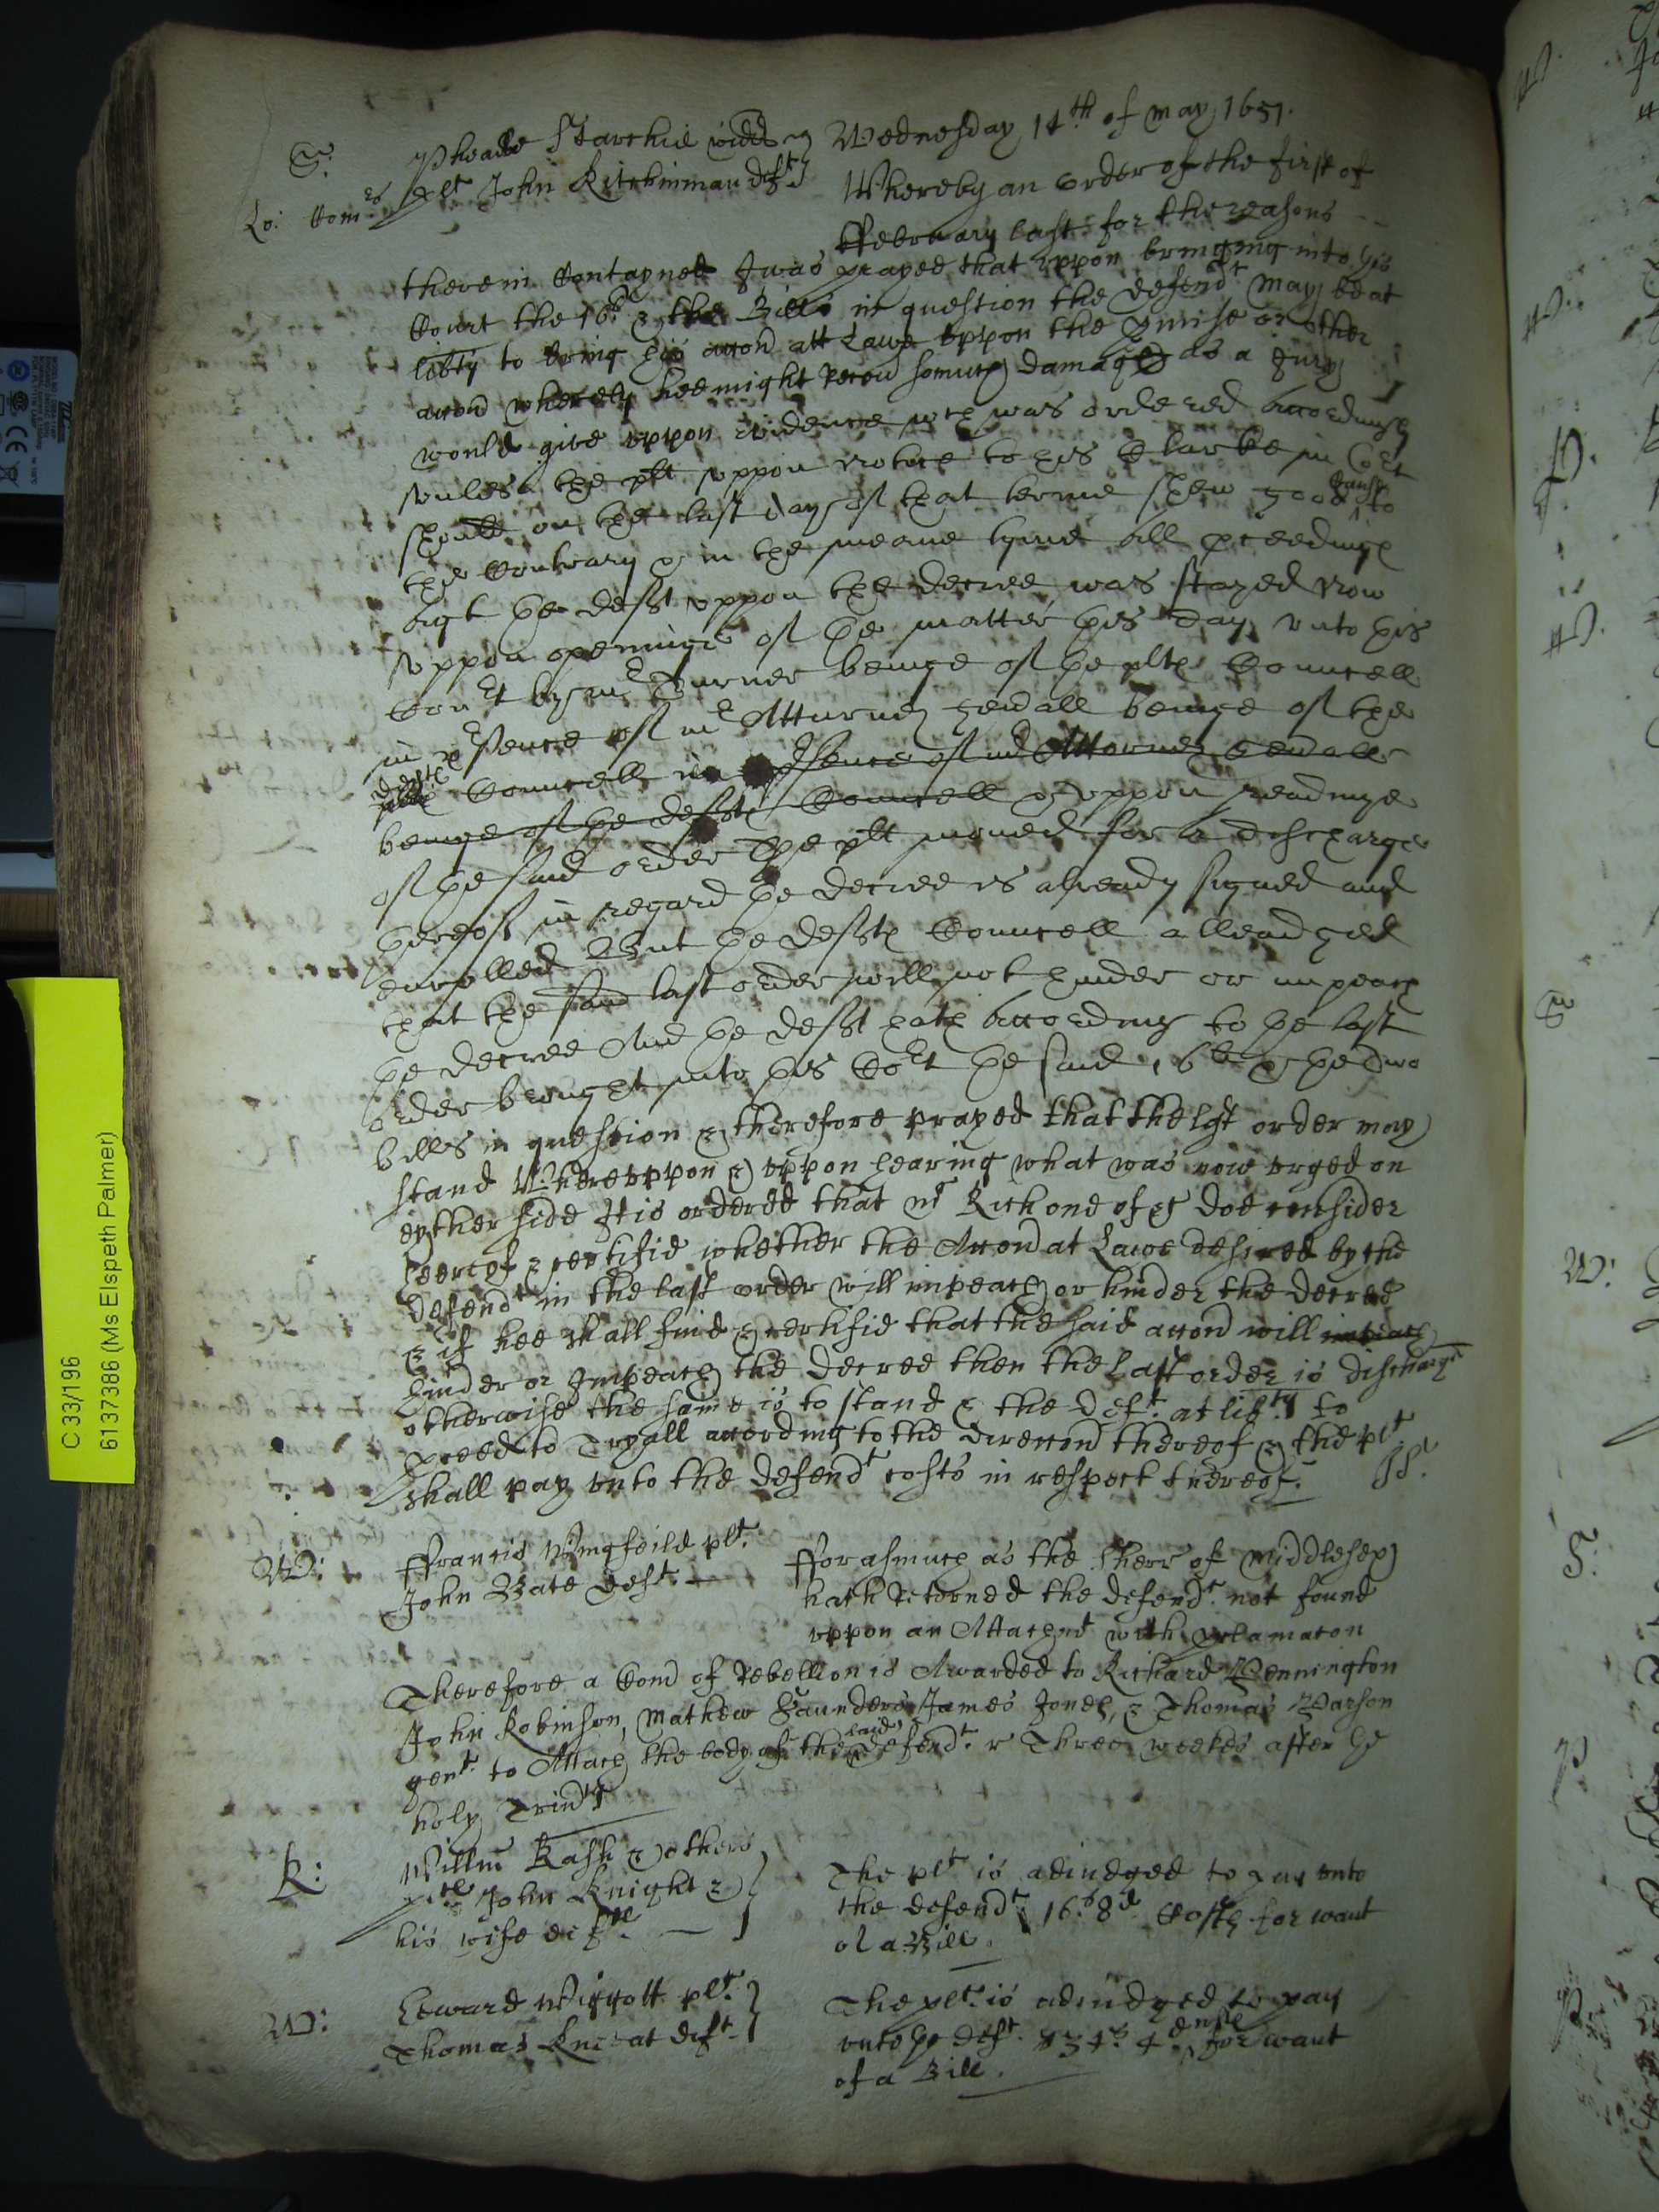 S. Pheabe Starchie widd Wednesday 14th of may 1651.
Lo: Comrs plt John Kitchinman deft Whereby an order of the first of
ffebruary last for the reasons
therein Contayned It was prayed that uppon bringing into this
Court the 16d & the Bills in question the defendt may be at
libty to bring his accon att Lawe uppon the pmise or other
accon whereby hee might recov somuch damages as a Jury
would give uppon evidence wch was ordered accordingly
unless the plt uppon notice to his Clarke in Cort
should on the last day of that terme shew good Cause to
the Contrary & in the meane tyme all pceedings
agt the deft uppon the decree was stayed Now
uppon openinge of the matter this day unto this
Court by mr Turner beinge of the plts Councell
in psence of mr Atturney genrall beinge of the
defts Councell in psence of mr Attorney Generall
beinge of the defts Councell & uppon readinge
of the said order The plt moved for a discharge
thereof in regard the decree is already signed and
enrolled But the defts Councell alleadged
that the said last order will not hinder or impeach
the decree And the deft hath according to the last
order brought into this Cort the said 16d & the two
bills in question & therefore prayed that the last order may
stand Whereuppon & uppon hearing what was now urged on
eyther side It is ordered that mr Rich one of &c doe consider
heereof & certifie whether the Accon at Lawe desired by the
Defendt in the last order will impeach or hinder the decree
& if hee shall find & certifie that the said accon will impeach
hinder or Impeach the decree then the last order is discharged
otherwise the same is to stand & the deft at libty to
pceed to Tryall according to the direccon thereof & the plt
shall pay unto the defendt costs in respect thereof.
W: ffrancis Wingfeild plt fforasmuch as the sherr of Middlesex
John Bate deft hath Retorned the defendt not found
uppon an Attachmt with pclamacon
Therefore a Comd of Rebellion is Awarded to Richard Pennington
John Robinson, Mathew Saunders James Jones, & Thomas Parson
gent to Attach the body of the said defendt r Three weekes after the
holy Trinity
K: Willm Rash & others The plt is adiudged to pay unto
plts John Knight & the defendt 16s 8d Costs for want
his wife defts of a Bill.
W: Edward Wiggott plt The plt is adiudged to pay
Thomas deft unto the deft for want
of a Bill.
C 33/196
6137386 (Ms Elspeth Palmer)